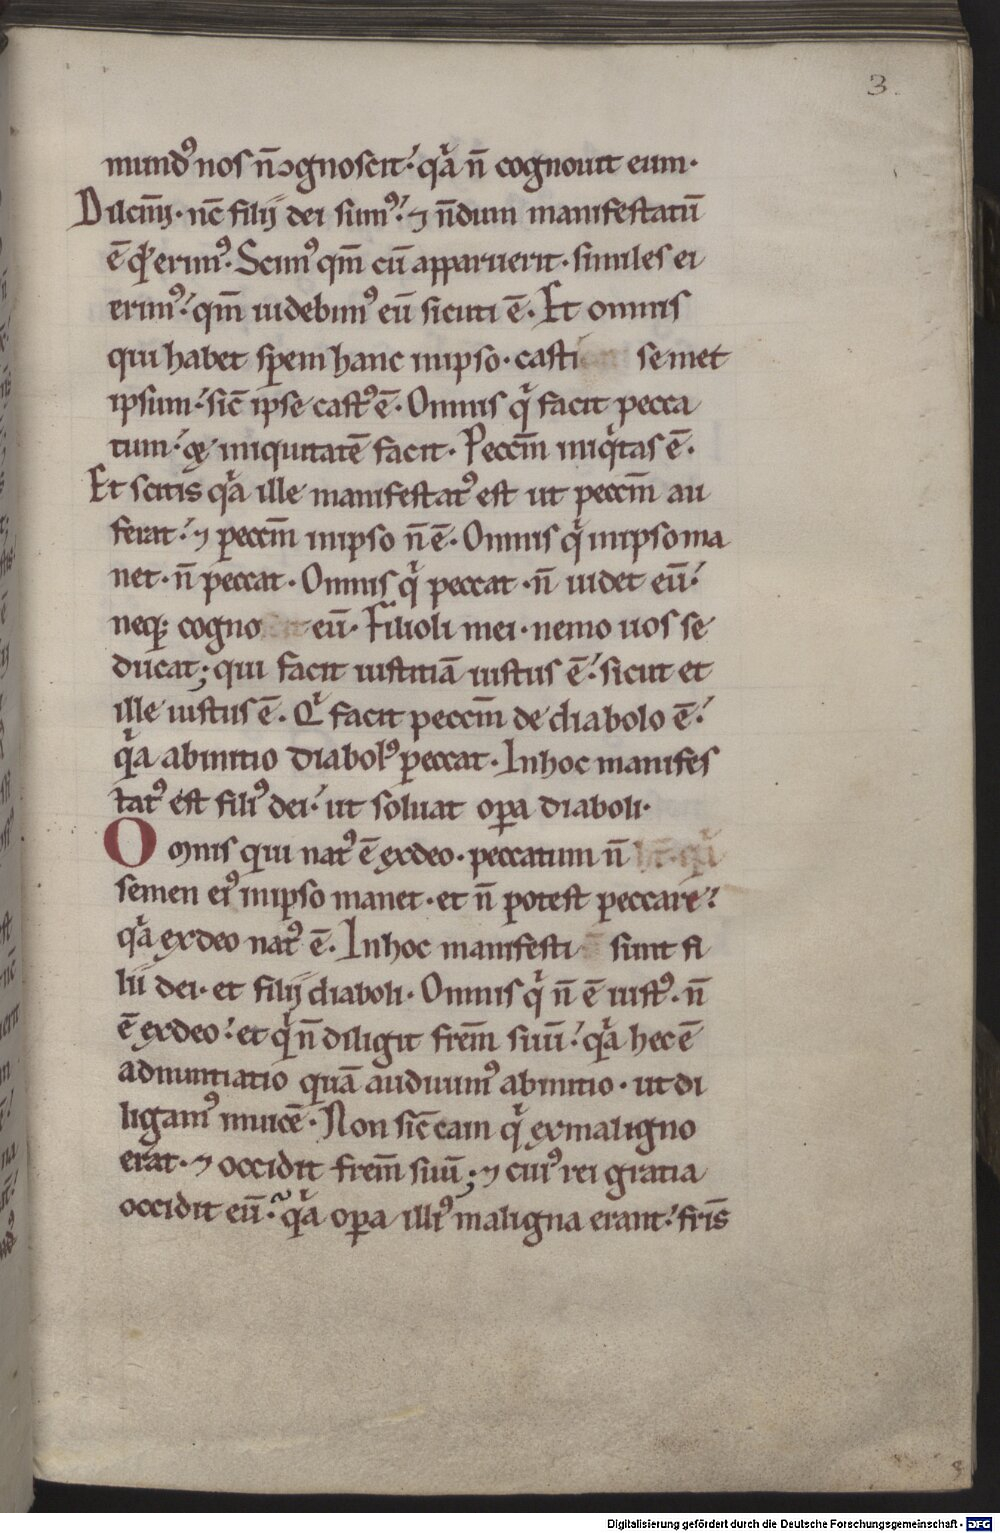 3.
mundꝰ nos n̄ ↄgnoscit. qͥa n̄ cognouit eum.
Dilcm̄i. nc̄ filij dei sumꝰ. ⁊ n̄dum manifestatū
ē qͥd erimꝰ. Scimꝰ qm̄ cū apparuerit. similes ei
erimꝰ. qm̄ uidebimꝰ eū sicuti ē. Et omnis
qui habet sp̄em hanc inipso. casti semet
ipsum. sic̄ ipse castꝰ ē. Omnis qͥ facit pecca
tum. & iniquitatē facit. Peccm̄ iniqͥtas ē.
Et scitis qͥa ille manifestatꝰ est ut peccm̄ au
ferat. ⁊ peccm̄ inipso n̄ ē. Omnis qͥ inipso ma
net. n̄ peccat. Omnis qͥ peccat. n̄ uidet eū.
neqꝫ cogno eū. Filioli mei. nemo uos se
ducat; qui facit iustitiā iustus ē. sicut et
ille iustus ē. Qͥ facit peccm̄ de diabolo ē.
qͥa abinitio diabolꝰ peccat. Inhoc manifes
tatꝰ est filiꝰ dei. ut soluat oꝑa diaboli.
Omnis qui natꝰ ē exdeo. peccatum n̄
semen eiꝰ inipso manet. et n̄ potest peccare.
qͥa exdeo natꝰ ē. Inhoc manifesti sunt fi
lii dei. et filij diaboli. Omnis qͥ n̄ ē iustꝰ. n̄
ē exdeo. et qͥ n̄ diligit frem̄ suū. qͥa hec ē
adnuntiatio quā audiuimꝰ abinitio. ut di
ligamꝰ inuicē. Non sic̄ cain qͥ exmaligno
erat. ⁊ occidit frem̄ suū; ⁊ cuiꝰ rei gratia
occidit eū. qͥa oꝑa illiꝰ maligna erant. fris̄
8
Digitalisierung gefördert durch die Deutsche Forschungsgemeinschaft - DFG